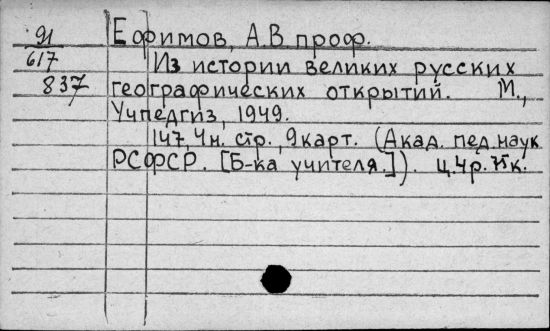 91 Ефимов, А.В проф.
617 Из истории великих русских
837 географических открытий. М.,
Учпедгиз, 1949.
147, 4 н. стр., 9 карт. (Акад. пед. наук
РСФСР. [Б-ка учителя.]). ц. 4 р. 75 к.